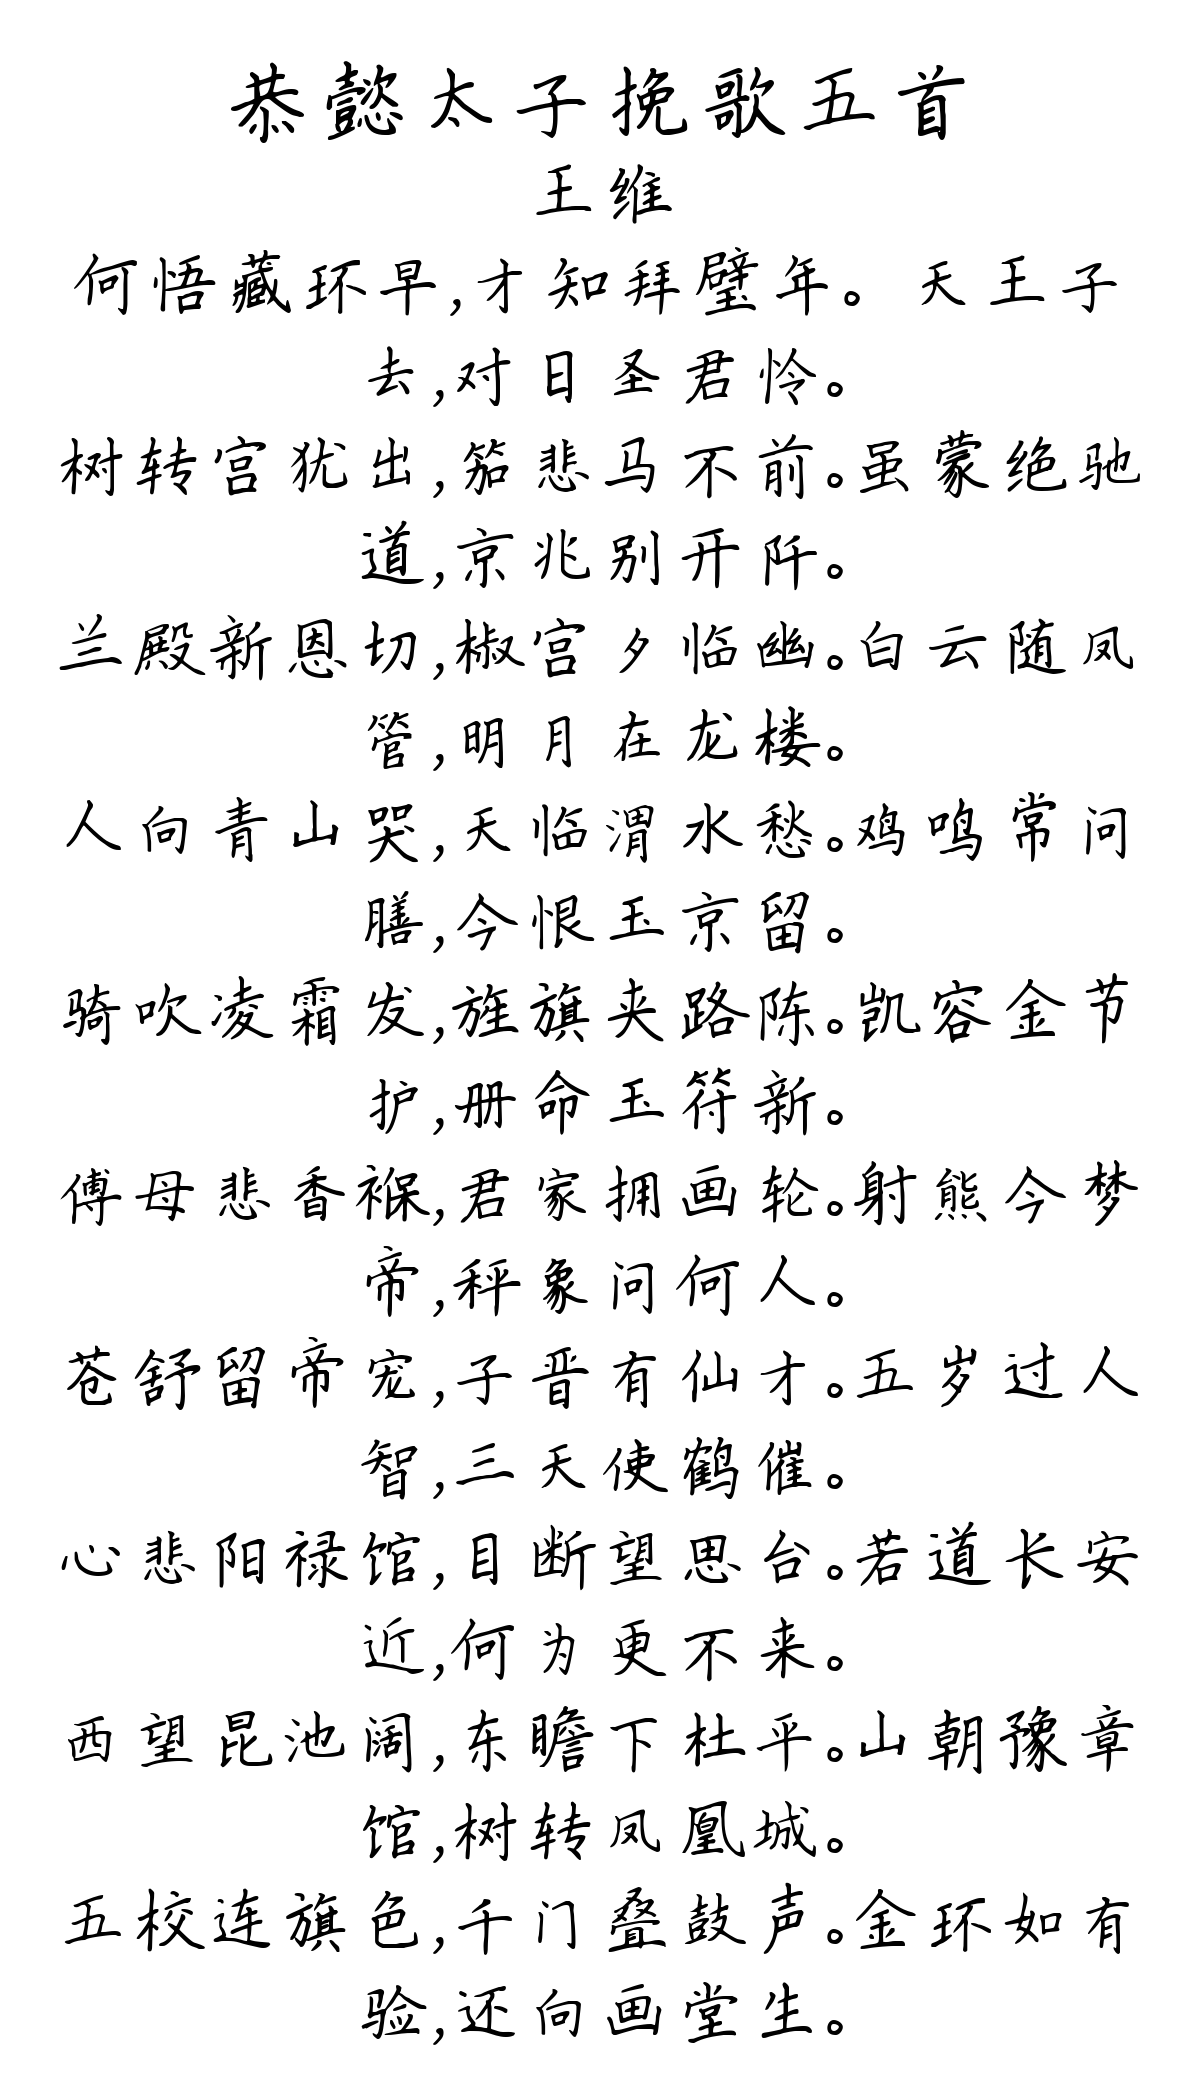 恭懿太子挽歌五首
王维
何悟藏环早,才知拜璧年。 天王子
去,对日圣君怜。
树转宫犹出,笳悲马不前。虽蒙绝驰
道,京兆别开阡。
兰殿新恩切,椒宫夕临幽。白云随凤
管,明月在龙楼。
人向青山哭,天临渭水愁。鸡鸣常问
膳,今恨玉京留。
骑吹凌霜发,旌旗夹路陈。凯容金节
护,册命玉符新。
傅母悲香褓,君家拥画轮。射熊今梦
帝,秤象问何人。
苍舒留帝宠,子晋有仙才。五岁过人
智,三天使鹤催。
心悲阳禄馆,目断望思台。若道长安
近,何为更不来。
西望昆池阔,东瞻下杜平。山朝豫章
馆,树转凤凰城。
五校连旗色,千门叠鼓声。金环如有
验,还向画堂生。